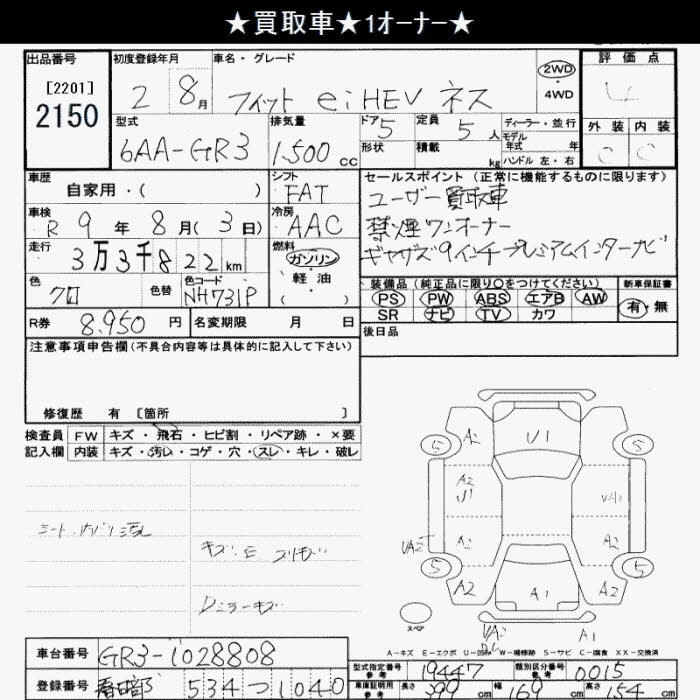 ★買取車★1オーナー★
出品番号
[2201]
2150
初度登録年月
2 8月
車名・グレード
フィット e:HEV ネス
2WD
・
4WD
評価点
4
外装 内装
C C
型式
6AA-GR3
排気量
1,500 cc
ドア 5
形状
定員 5 人
積載 kg
ディーラー・並行
モデル年式 年
ハンドル 左・右
車歴
自家用・( )
シフト
FAT
車検
R 9 年 8 月( 3 日)
冷房
AAC
走行
3万3千822km
燃料
ガソリン
・
軽油
・
色
クロ
色替
色コード
NH731P
R券 8,950 円
名変期限 月 日
セールスポイント (正常に機能するものに限ります)
ユーザー買取車
禁煙ワンオーナー
ギャザズ9インチプレミアムインターナビ
装備品 (純正品に限り○をつけてください)
PS PW ABS エアB AW
SR ナビ TV カワ
新車保証書
有・無
後日品
注意事項申告欄(不具合内容等は具体的に記入して下さい)
修復歴 有 [箇所 ]
検査員 FW キズ・飛石・ヒビ割・リペア跡・×要
記入欄 内装 キズ・汚レ・コゲ・穴・スレ・キレ・破レ
シート、内バリ汚レ
Dミラーキズ
5 A2 U1 5
A2
U1 UA1
A2 A2
5 A2 A1 A2 5
スペア
A1
A-キズ E-エクボ U-凹凸 W-補修跡 S-サビ C-腐食 XX-交換済
車台番号 GR3-1028808
登録番号 春日部 534 つ 1040
型式指定番号 参考 19447
類別区分番号 参考 0015
車庫証明用 参考 長さ 399 cm 幅 169 cm 高さ 154 cm